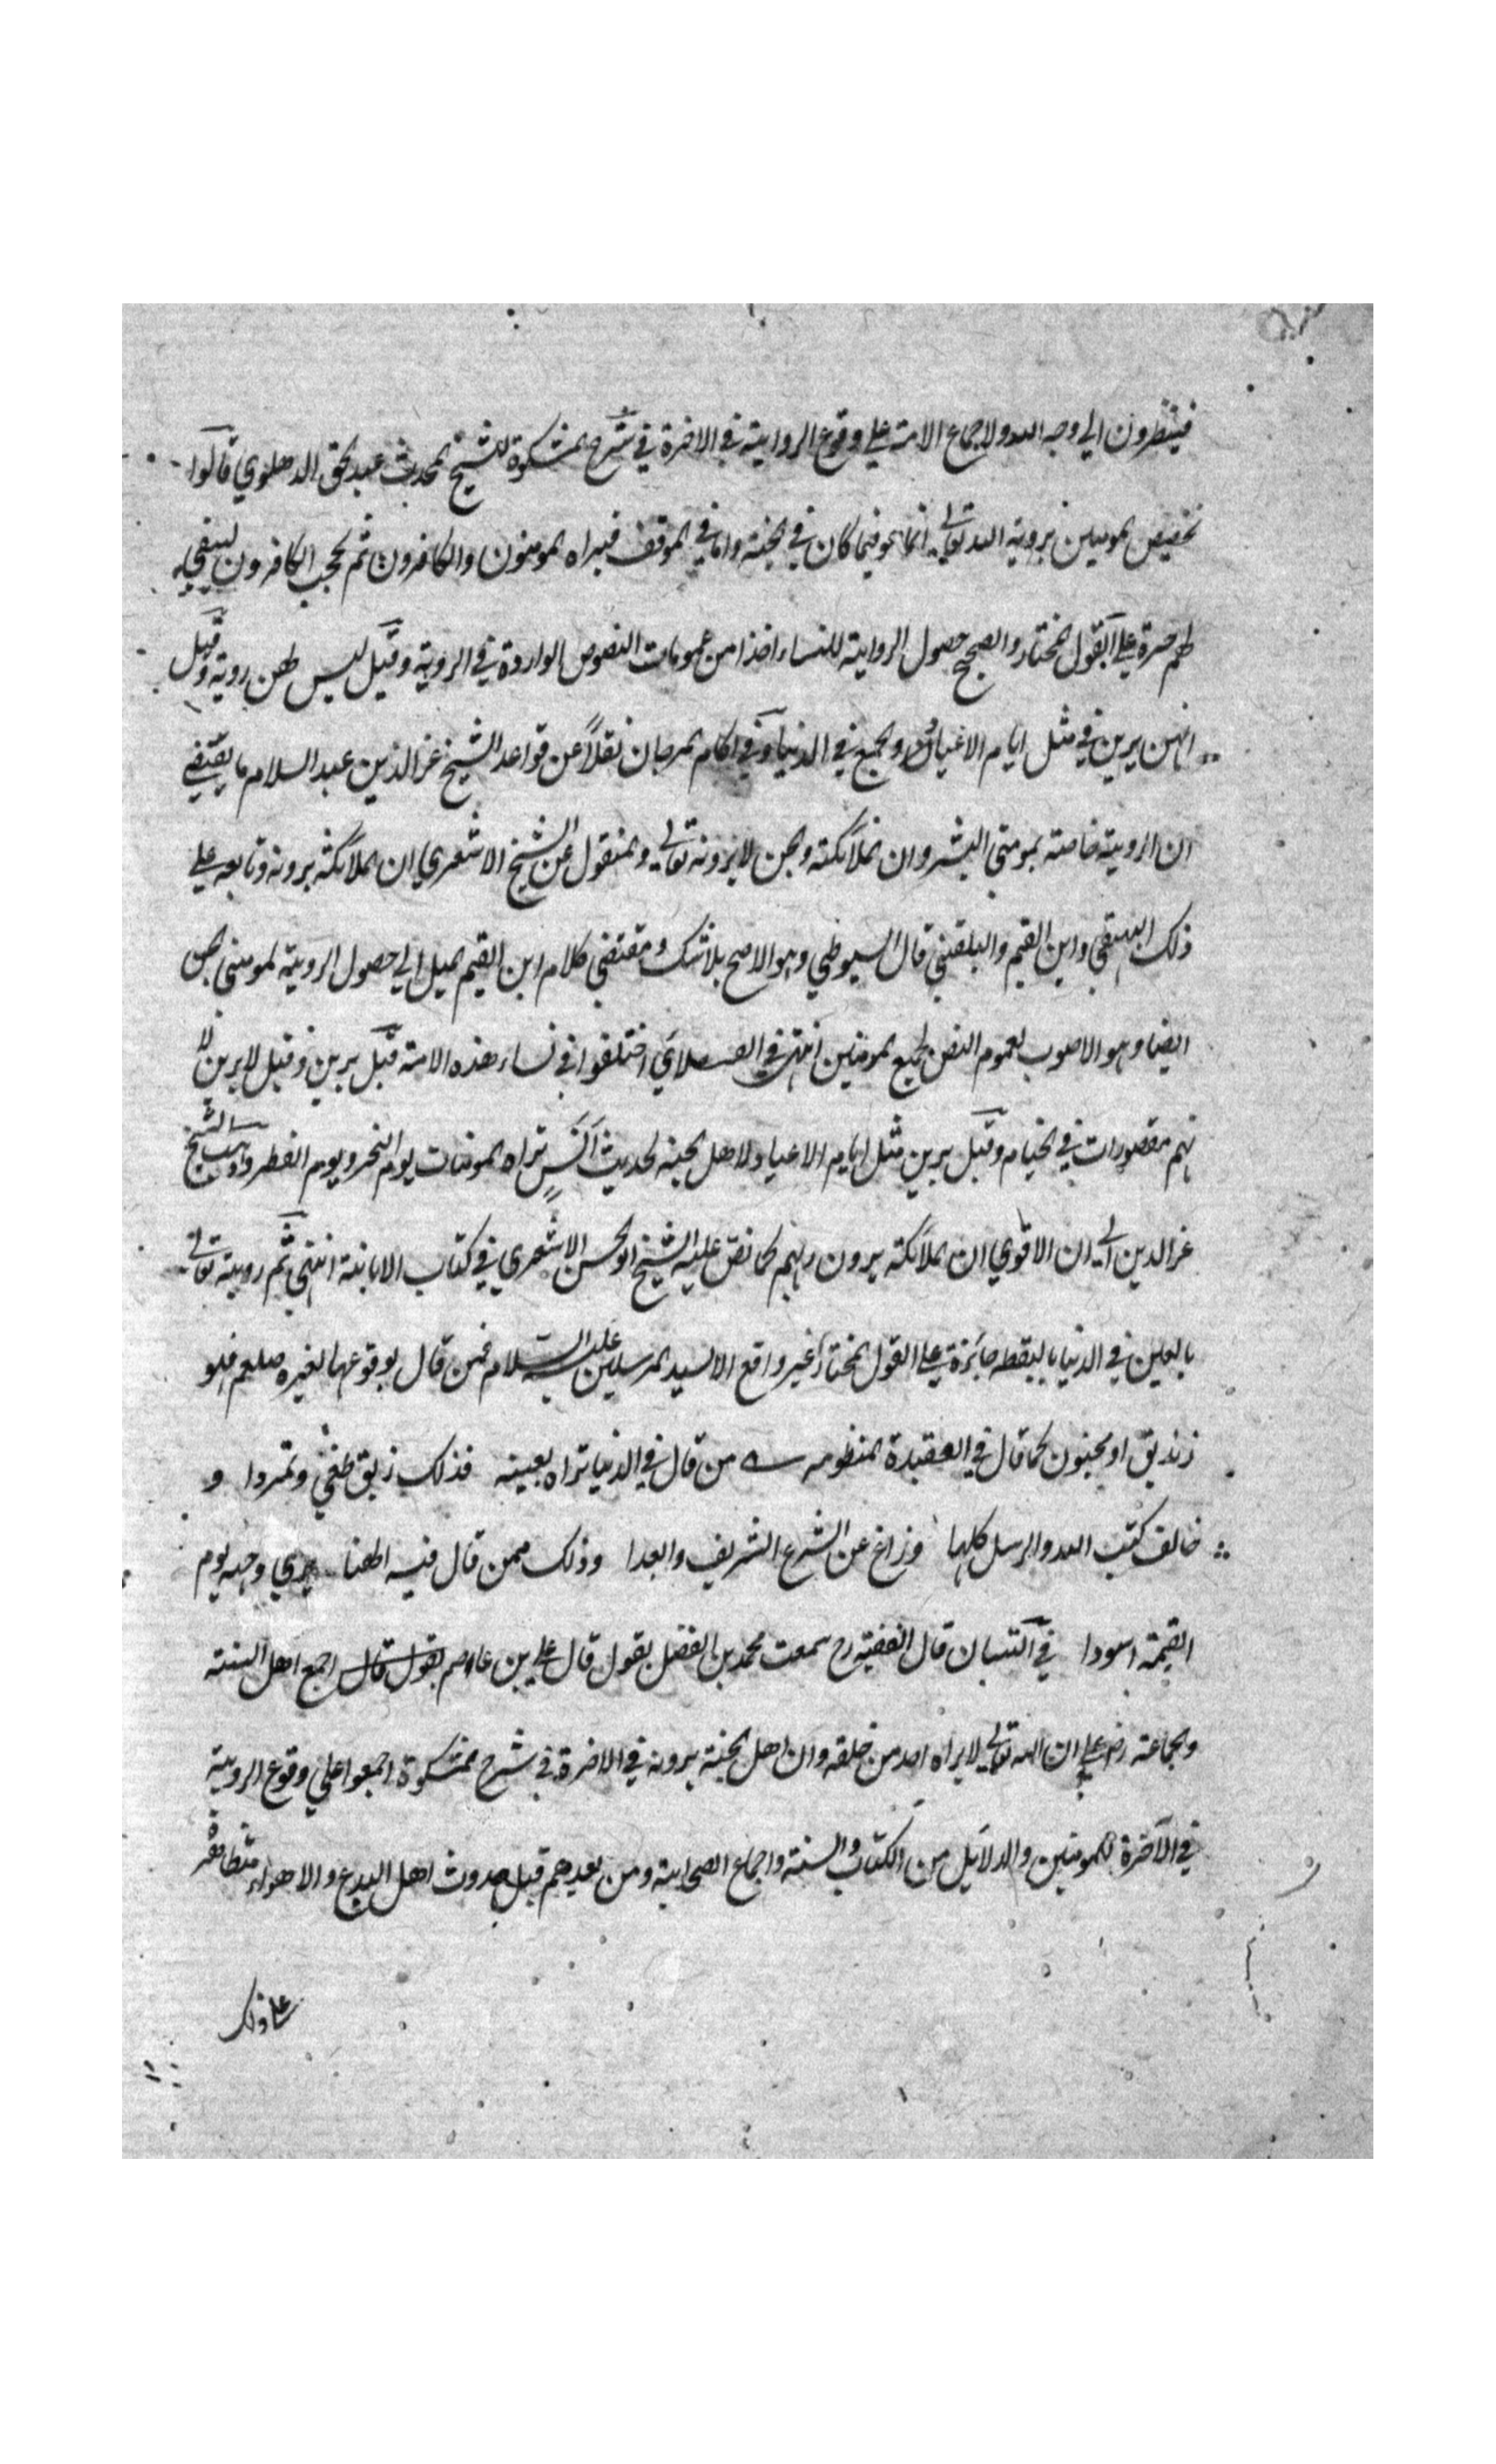 فينظرون الي وجه الله ولاجماع الامة علي وقوع الرواية في الاخرة في شرح المشكوة للشيخ المحدث عبد الحق الدهلوي قالوا
تخصيص المومنين بروية الله تعالي انما هو فيما كان في الجنة واما في الموقف فيراه المومنون والكافرون ثم يحجب الكافرون ليبقي
لهم حسرة علي القول المختار والصحيح حصول الرواية للنساء اخذا من عمومات النصوص الواردة في الروية وقيل ليس لهن روية وقيل
انهن يرين في مثل ايام الاعياد والجمع في الدنيا وفي اكام المرجان نقلاً عن قواعد الشيخ عز الدين عبد السلام ما يقتضي
ان الروية خاصة بمومني البشر وان الملائكة والجن لا يرونه تعالي والمنقول عن الشيخ الاشعري ان الملائكة يرونه وتابعه علي
ذلك البيهقي وابن القيم والبلقيني قال السيوطي وهو الاصح بلا شك ومقتضي كلام ابن القيم يميل الي حصول الروية لمومني الجن
ايضا وهو الاصوب لعموم النص لجميع المومنين انتهي في اختلفوا في نساء هذه الامة قيل يرين وقيل لا يرين لا
نهم مقصورات في الخيام وقيل يرين مثل ايام الاعياد لاهل الجنة لحديث انس تراه المومنات يوم النحر ويوم الفطر وذهب الشيخ
عز الدين الي ان الاقوي ان الملائكة يرون ربهم كما نص عليه الشيخ ابو الحسن الاشعري في كتاب الابانة انتهي ثم رويته تعالي
بالعين في الدنيا باليقظه جائزة علي القول المختار غير واقع الا لسيد المرسلين عليه السلام فمن قال بوقوعها لغيره صلعم فهو
زنديق او مجنون كما قال في العقيدة المنظومه من قال في الدنيا تراه بعينه فذلك زنديق طغي وتمردا و
خالف كتب الله والرسل كلها وزاغ عن الشرع الشريف وابعدا وذلك ممن قال فيه الهنا يري وجهه يوم
القيمة اسودا في البستان قال الفقيه رح سمعت محمد بن الفضل يقول قال علي بن عاصم يقول قال اجمع اهل السنة
والجماعة رض علي ان الله تعالي لا يراه احد من خلقه وان اهل الجنة يرونه في الاخرة في شرح المشكوة اجمعوا علي وقوع الروية
في الآخرة للمومنين والدلائل من الكتاب والسنة واجماع الصحابة ومن بعدهم قبل حدوث اهل البدع والاهواء متظافرة
علي ذلك